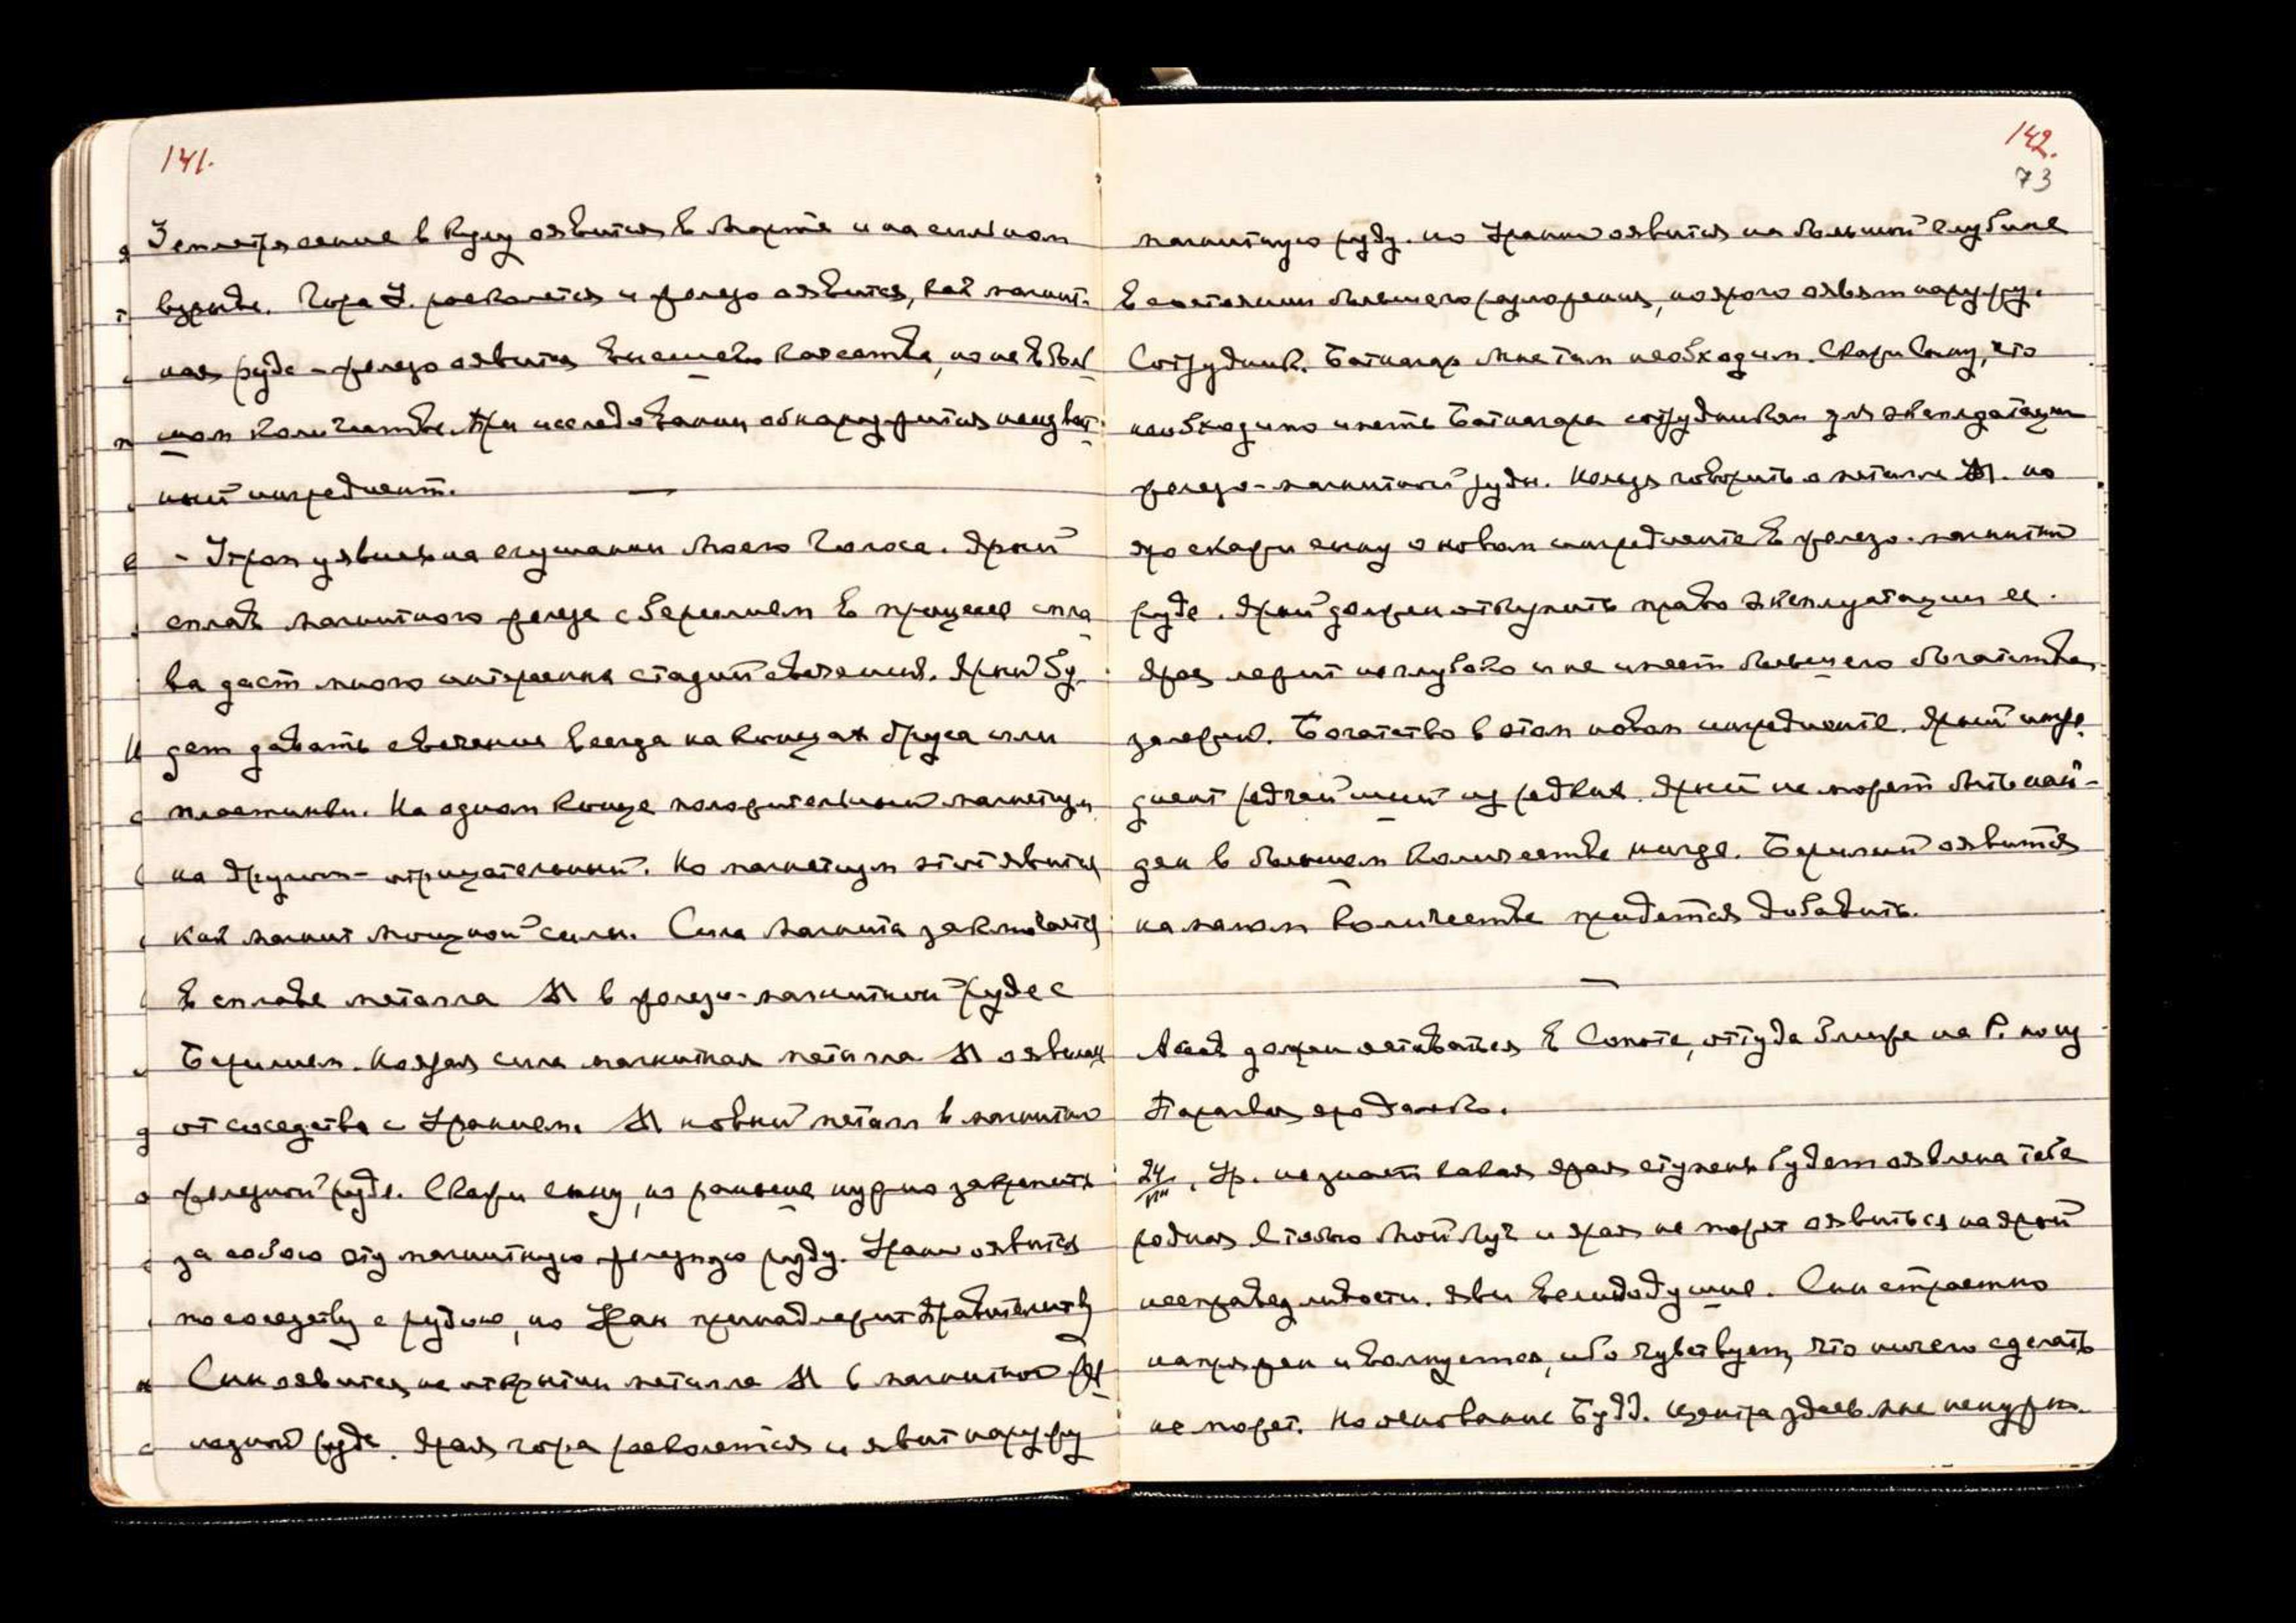 141.
Землетрясение в Кулу оявится в Марте и на сильном
взрыве. Гора У. расколется и железо оявится, как магнит-
ная руда – железо оявится высшего качества, но не в боль
шом количестве. При исследовании обнаружится неизвест-
ный ингредиент.
– Утром уявись на слушании Моего Голоса. Ярый
сплав магнитного железа с Берилием в процессе спла
ва даст много интересных стадий свечений. Ярый бу
дет давать свечение всегда на концах бруса или
пластинки. На одном конце положительный магнетизм
на другом – отрицательный. Но магнетизм этот явится
как магнит мощной силы. Сила магнита заключается
в сплаве металла М в железо-магнитной руде с
Берилием. Но ярая сила магнитная металла М оявлена
от соседства с Ураном. М новый металл в магнитно
железной руде. Скажи сыну, но раньше нужно закрепить
за собою эту магнитную железную руду. Уран оявится
по соседству с рудою, но Уран принадлежит Правительству
Сын оявится на открытии металла М в магнитной же
лезной руде. Ярая гора расколется и явит наружу
142.
73
магнитную руду. но Ураний оявится на большой глубине
в состоянии большего разложения, но яро оявят наружу.
Сотрудник Батнагар Мне там необходим. Скажи Сыну, что
необходимо иметь Батнагара сотрудником для эксплоатации
железо-магнитной руды. Нельзя говорить о металле М. но
яро скажи сыну о новом ингредиенте в железо-магнитной
руде. Ярый должен откупить право эксплуатации ее.
Ярая лежит неглубоко и не имеет большего богатства
залежей. Богатство в этом новом ингредиенте. Ярый ингре
диент редчайший из редких. Ярый не может быть най-
ден в большом количестве нигде. Берилий оявится
на малом количестве придется добавить.
Асав должен оставаться в , оттуда ближе на Р. по
яро далеко.
24/VIII. Ур. не знает какая ярая ступень будет оявлена тебе
родная только Мой Луч и ярая не может оявиться на ярой
несправедливости. Яви великодушие. Сын страстно
напряжен и волнуется, ибо чувствует, что ничего сделать
не может. Но основание Будд. центра здесь мне ненужно.